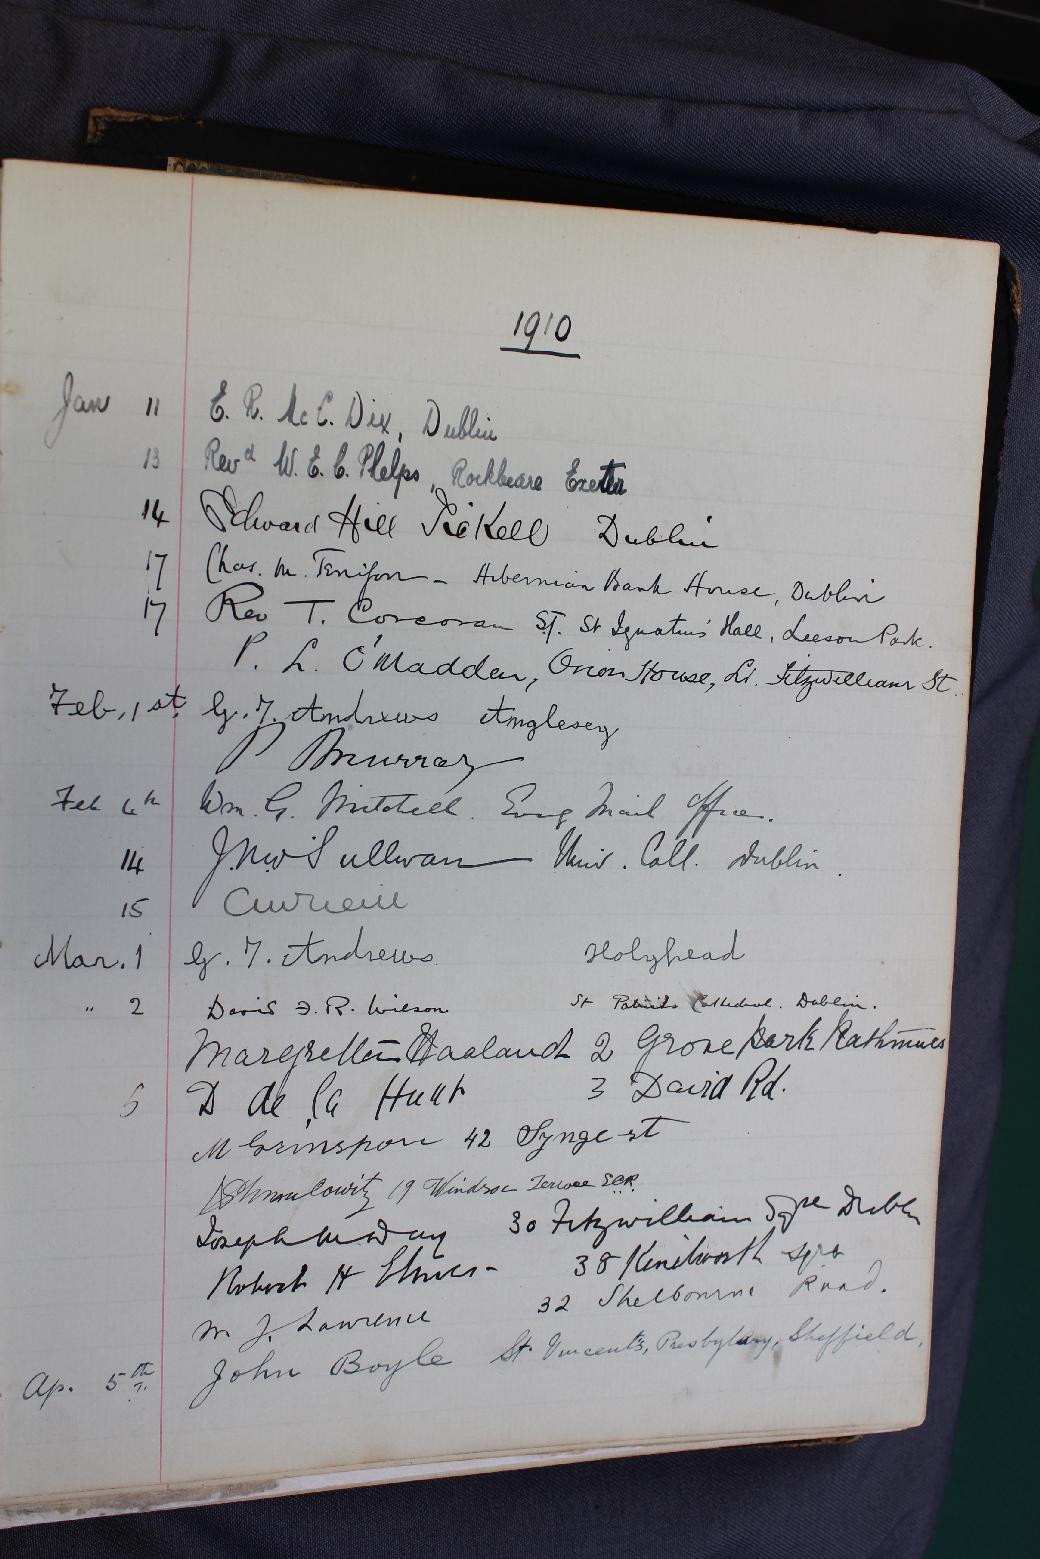 1910
Jan 11 E. R. McC. Dix, Dublin
13 Revd W. E. C. Phelps, Rockbeare Exeter
14 Edward Hill Tickell Dublin
17 Chas. M. Tenison - Hibernian Bank House, Dublin
17 Rev T. Corcoran S.J. St Ignatius' Hall, Leeson Park.
P. L. O'Madden, Orion House, Lr. Fitzwilliam St.
Feb. 1st. G. T. Andrews Anglesey
P Murray
Feb 6th Wm. G. Mitchell. Eveg Mail Office.
14 Sullivan Univ. Coll. Dublin.
15
Mar. 1 G. T. Andrews Holyhead
" 2 David F. R. Wilson St Patrick's Cathedral. Dublin.
Margrethe Haaland 2 Grove Park Rathmines
5 D de la Hunt 3 David Rd.
M Grinspon 42 Synge st
19 Windsor Terrace S.C.R.
Joseph 30 Fitzwilliam Sqre Dublin
Robert H 38 Kenilworth sqre
M. J. Lawrence 32 Shelbourne Road.
Ap. 5th John Boyle St. Vincent's, Presbytery, Sheffield.